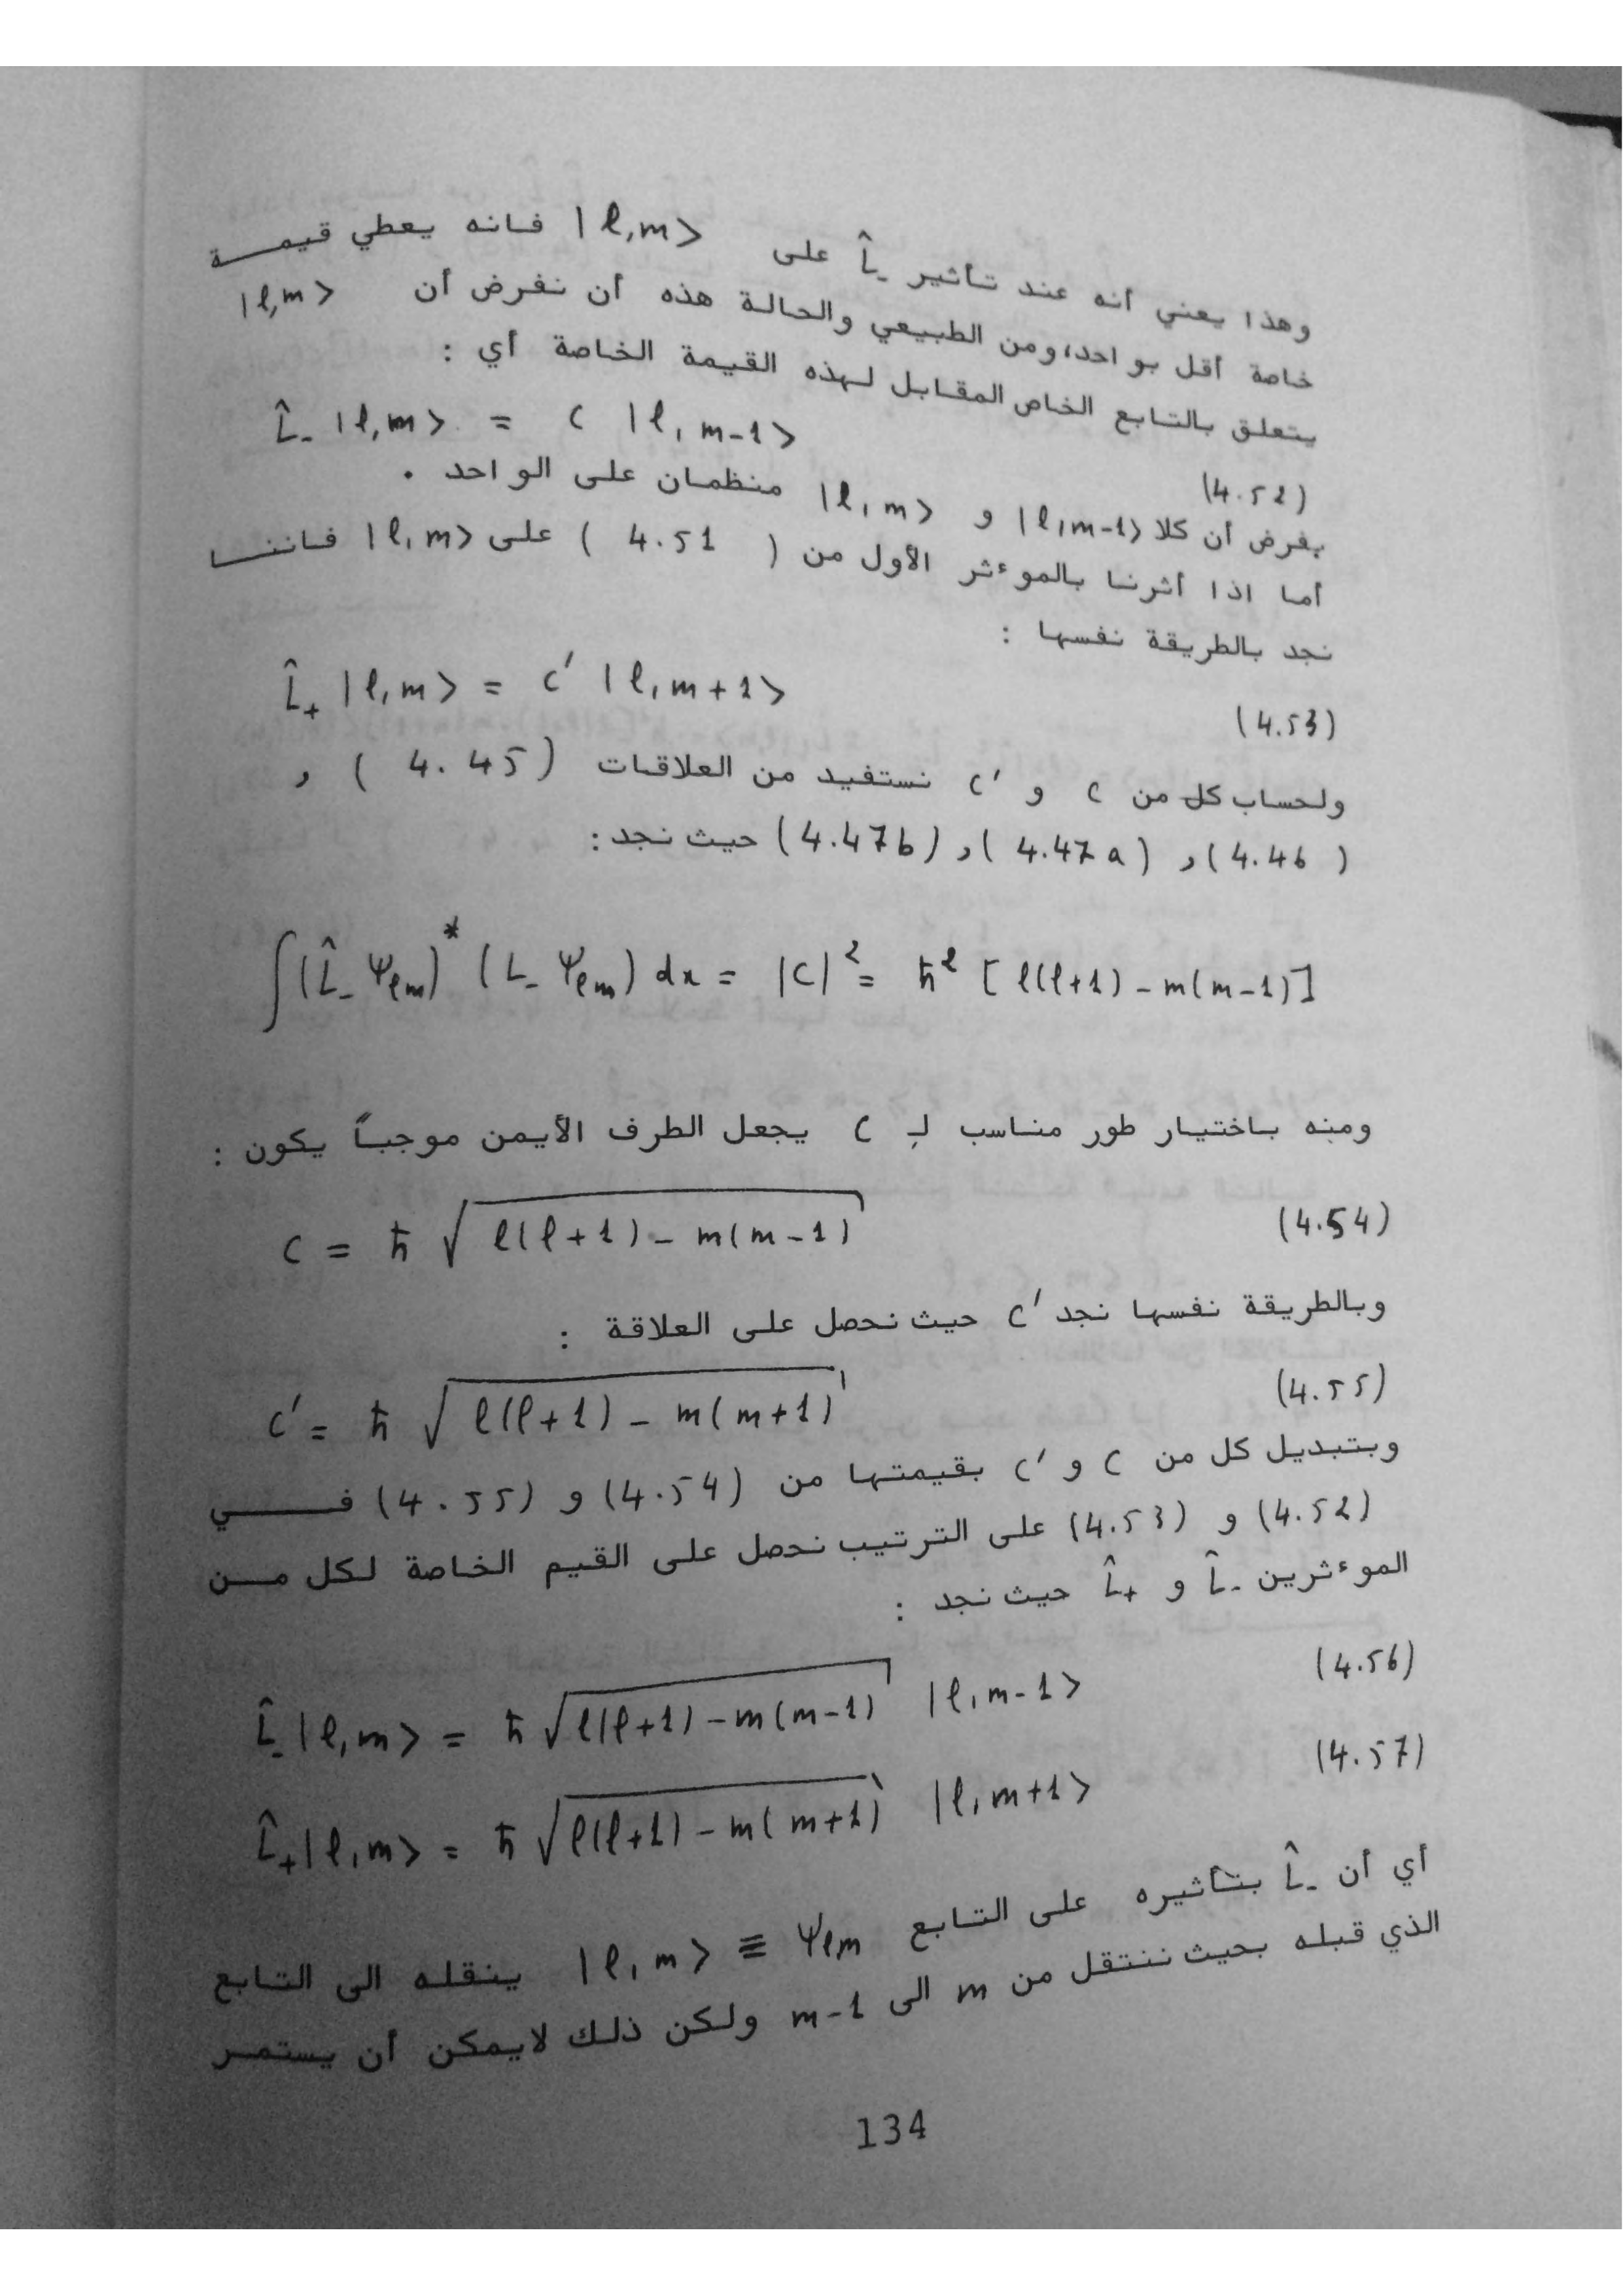 وهذا يعني أنه عند تأثير L̂₋ على |ℓ,m> فانه يعطي قيمة
خاصة أقل بواحد، ومن الطبيعي والحالة هذه أن نفرض أن |ℓ,m>
يتعلق بالتابع الخاص المقابل لهذه القيمة الخاصة أي :
L̂₋ |ℓ,m> = C |ℓ, m-1>
(4.52)
بفرض أن كلا |ℓ,m-1> و |ℓ,m> منظمان على الواحد .
أما اذا أثرنا بالموءثر الأول من ( 4.51 ) على |ℓ,m> فاننا
نجد بالطريقة نفسها :
L̂₊ |ℓ,m> = C′ |ℓ, m+1>
(4.53)
ولحساب كل من C و C′ نستفيد من العلاقات ( 4.45 ) ,
( 4.46 ) , ( 4.47 a ) , (4.47b) حيث نجد :
∫(L̂₋ Ψℓm)* (L₋ Ψℓm) dx = |C|² = ħ² [ℓ(ℓ+1) - m(m-1)]
ومنه باختيار طور مناسب لـِ C يجعل الطرف الأيمن موجباً يكون :
C = ħ √ℓ(ℓ+1) - m(m-1) (4.54)
وبالطريقة نفسها نجد C′ حيث نحصل على العلاقة :
C′ = ħ √ℓ(ℓ+1) - m(m+1) (4.55)
وبتبديل كل من C و C′ بقيمتها من (4.54) و (4.55) في
(4.52) و (4.53) على الترتيب نحصل على القيم الخاصة لكل من
الموءثرين L̂₋ و L̂₊ حيث نجد :
L̂₋|ℓ,m> = ħ √ℓ(ℓ+1) - m(m-1) |ℓ,m-1> (4.56)
L̂₊|ℓ,m> = ħ √ℓ(ℓ+1) - m(m+1) |ℓ,m+1> (4.57)
أي أن L̂₋ بتأثيره على التابع |ℓ,m> ≡ Ψℓm ينقله الى التابع
الذي قبله بحيث ننتقل من m الى m-1 ولكن ذلك لايمكن أن يستمر
134